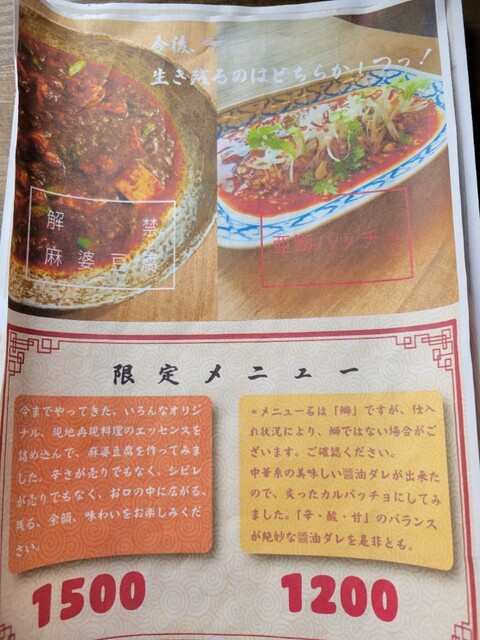 今後、
生き残るのはどちらか1つっ！
解禁
麻婆豆腐
亜鰤パッチョ
限定メニュー
今までやってきた、いろんなオリジ
ナル、現地再現料理のエッセンスを
詰め込んで、麻婆豆腐を作ってみま
した。辛さが売りでもなく、シビレ
が売りでもなく、お口の中に広がる、
残る、余韻、味わいをお楽しみくだ
さい。
＊メニュー名は「鰤」ですが、仕入
れ状況により、鰤ではない場合がご
ざいます。ご確認ください。
中華系の美味しい醤油ダレが出来た
ので、炙ったカルパッチョにしてみ
ました。「辛・酸・甘」のバランス
が絶妙な醤油ダレを是非とも。
1500
1200